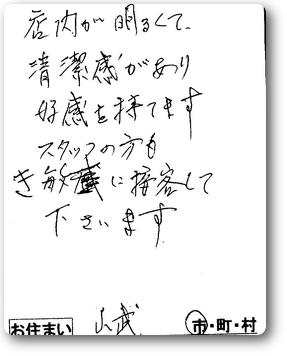 店内が明るくて、
清潔感があり
好感を持てます
スタッフの方も
き敏に接客して
下さいます
お住まい 山武 市・町・村